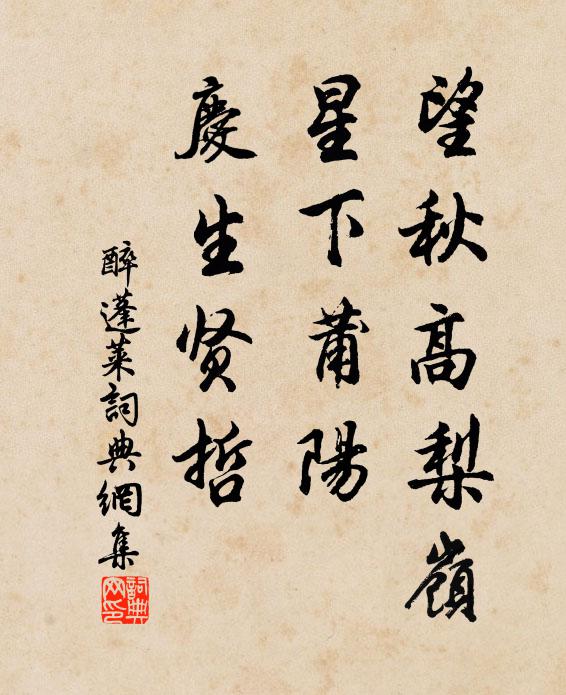 望秋高梨嶺
星下莆陽
慶生贤哲
醉蓬萊詞典網集
詞典网印